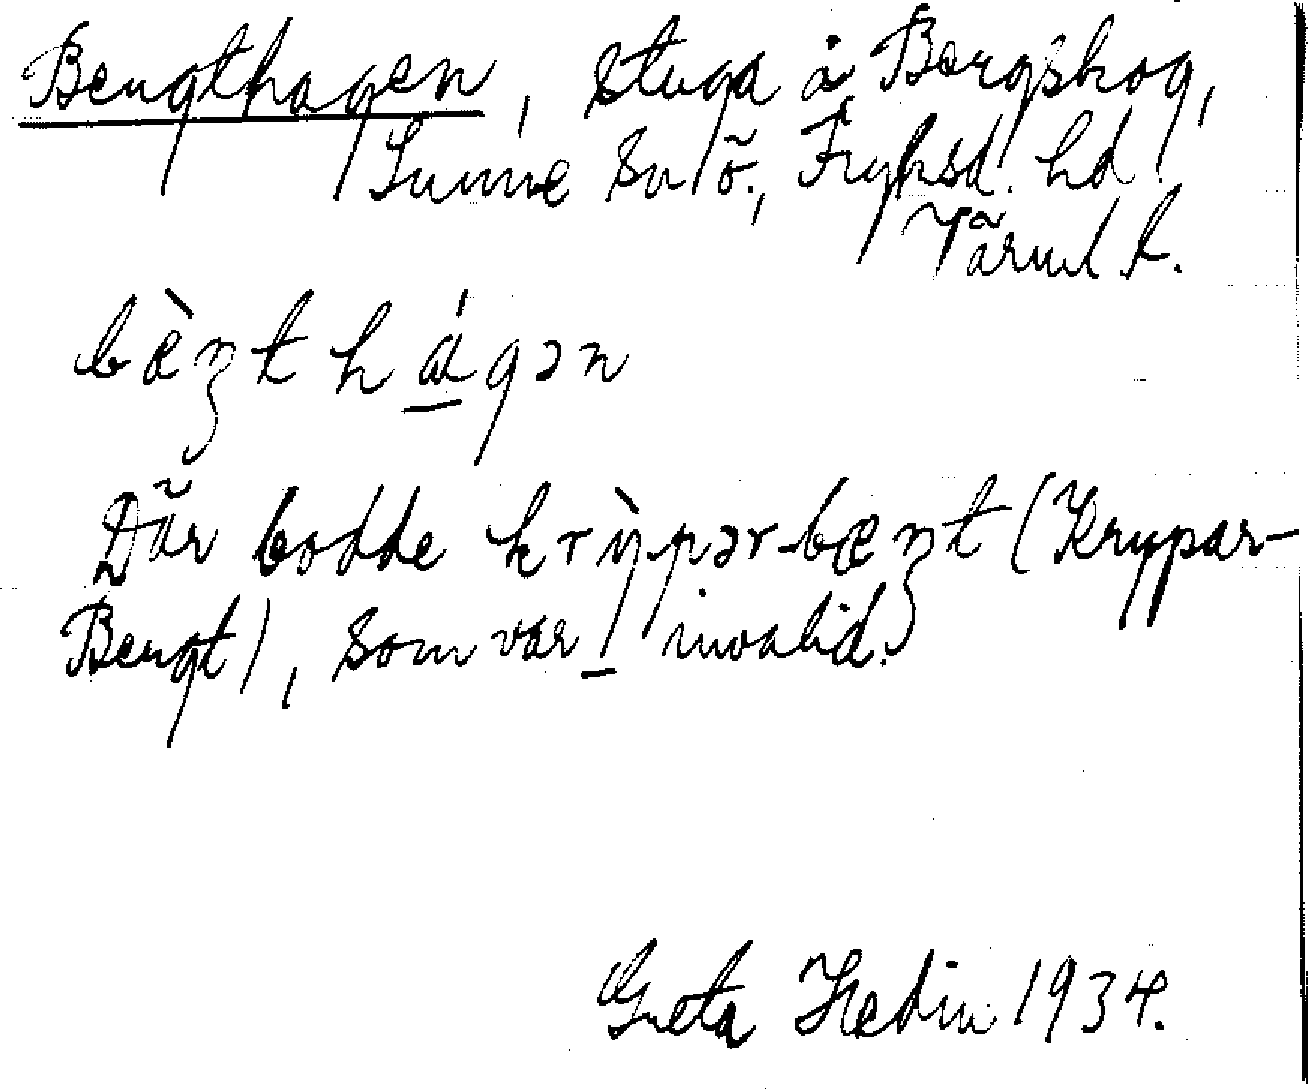 Bengthagen, stuga å Bergskog,
Sunne sn ö., Fryksd. hd
Värml l.
bæ̀ŋt h ágən
Där bodde krỳpər-bæŋt (Krypar-
Bengt), som var invalid.
Greta Hedin 1934.